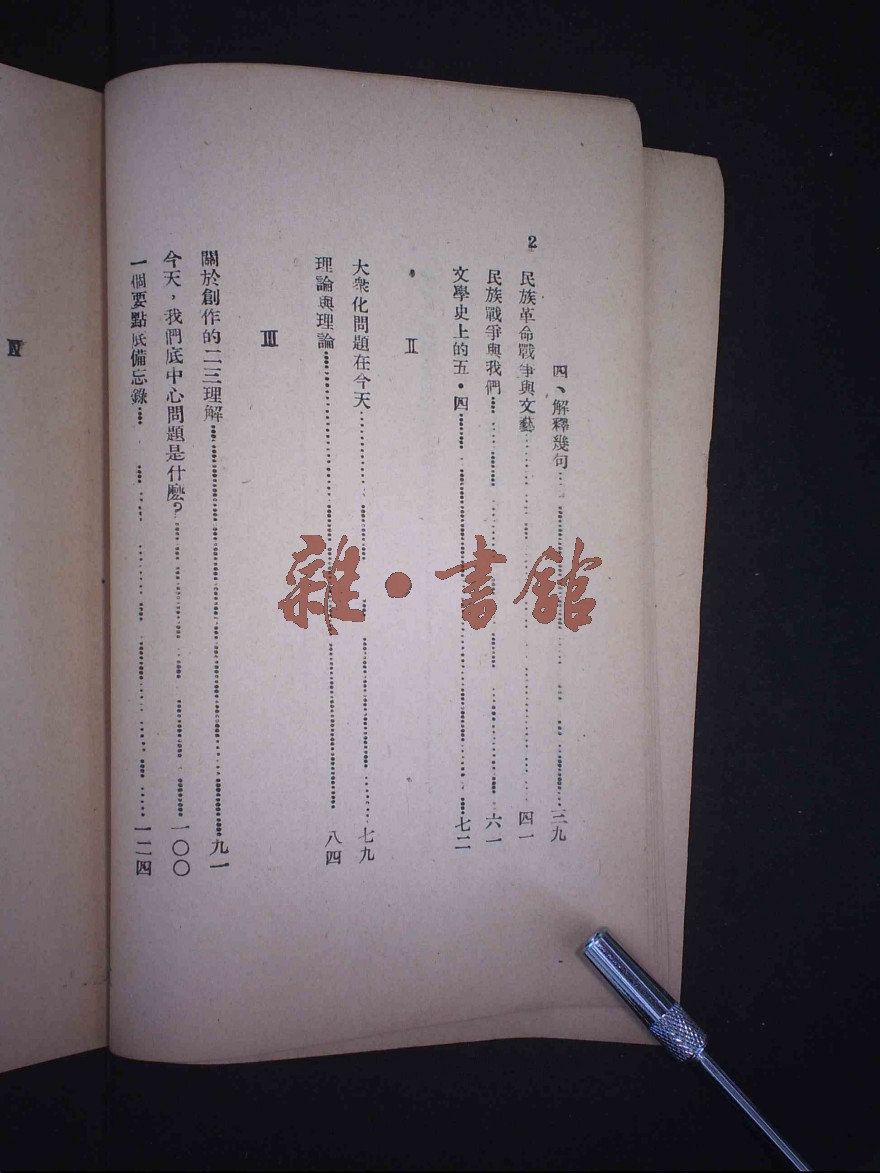 2
四、解釋幾句 三九
民族革命戰爭與文藝 四一
民族戰爭與我們 六一
文學史上的五・四 七二
Ⅱ
大衆化問題在今天 七九
理論與理論 八四
Ⅲ
關於創作的二三理解 九一
今天，我們底中心問題是什麽？ 一〇〇
一個要點底備忘錄 一二四
Ⅳ
雜・書館